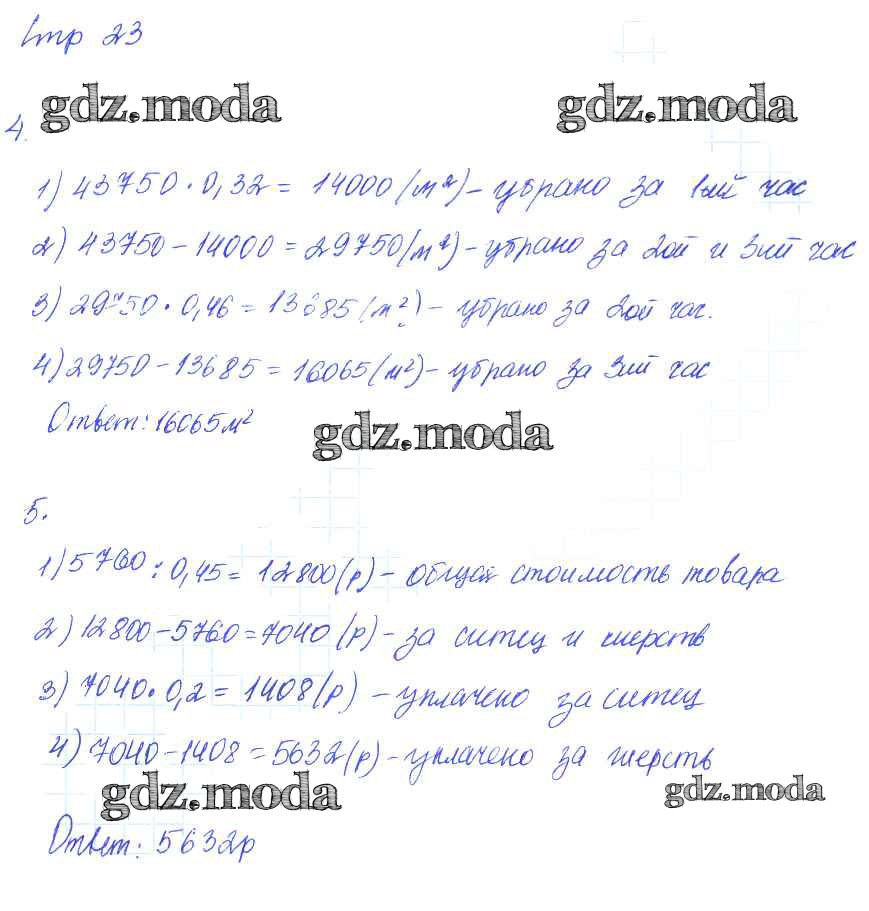 Стр 23
gdz.moda gdz.moda
4.
1) 43750 · 0,32 = 14000 (м²) – убрано за 1ый час
2) 43750 – 14000 = 29750 (м²) – убрано за 2ой и 3ий час
3) 29750 · 0,46 = 13685 (м²) – убрано за 2ой час.
4) 29750 – 13685 = 16065 (м²) – убрано за 3ий час
Ответ: 16065 м²
gdz.moda
5.
1) 5760 : 0,45 = 12800 (р) – общая стоимость товара
2) 12800 – 5760 = 7040 (р) – за ситец и шерсть
3) 7040 · 0,2 = 1408 (р) – уплачено за ситец
4) 7040 – 1408 = 5632 (р) – уплачено за шерсть
gdz.moda gdz.moda
Ответ: 5632р